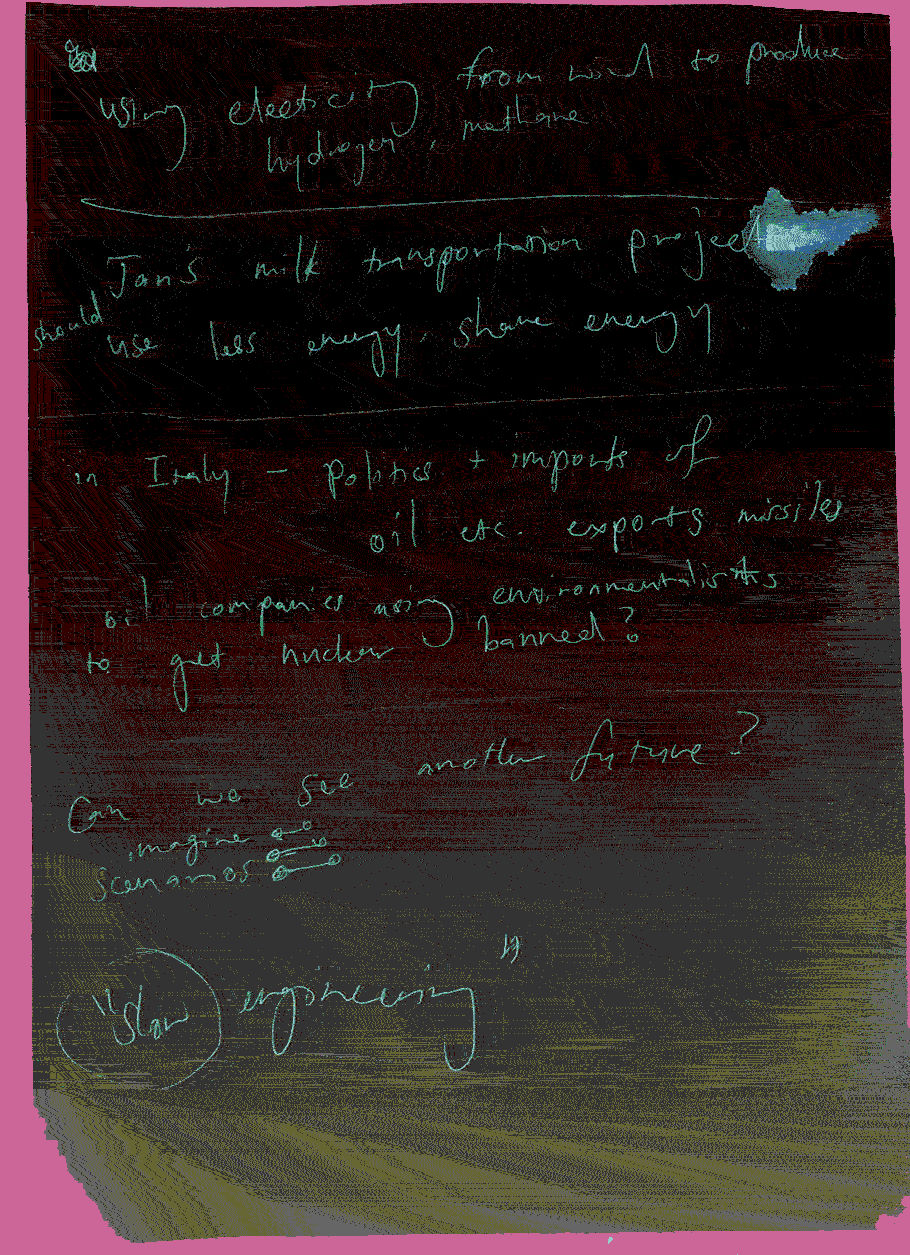 using electricity from wind to produce
hydrogen, methane
Jan's milk transportation project
should use less energy, share energy
in Italy - politics + imports of
oil etc. exports missiles
oil companies using environmentalists
to get nuclear banned?
Can we see another future?
imagine
scenarios
"Slow engineering"